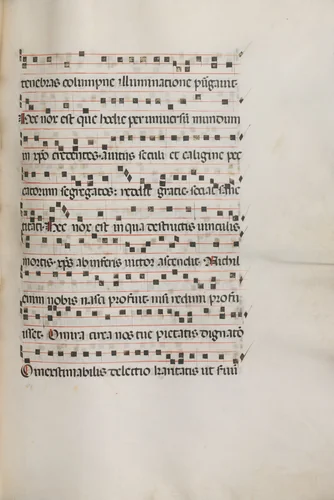 tenebras columpne illuminatione purgauit
Hec nox est que hodie per uniuersū mundum
in xpo credentes a uitiis seculi et caligine pec
catorum segregatos: reddit gratie sociat sanc
titati. Hec nox est in qua destructis uinculis
mortis xps ab inferis uictor ascendit. Nichil
enim nobis nasci profuit nisi redimi profu
isset. O mira circa nos tue pietatis dignatō
O inextimabilis dilectio karitatis ut